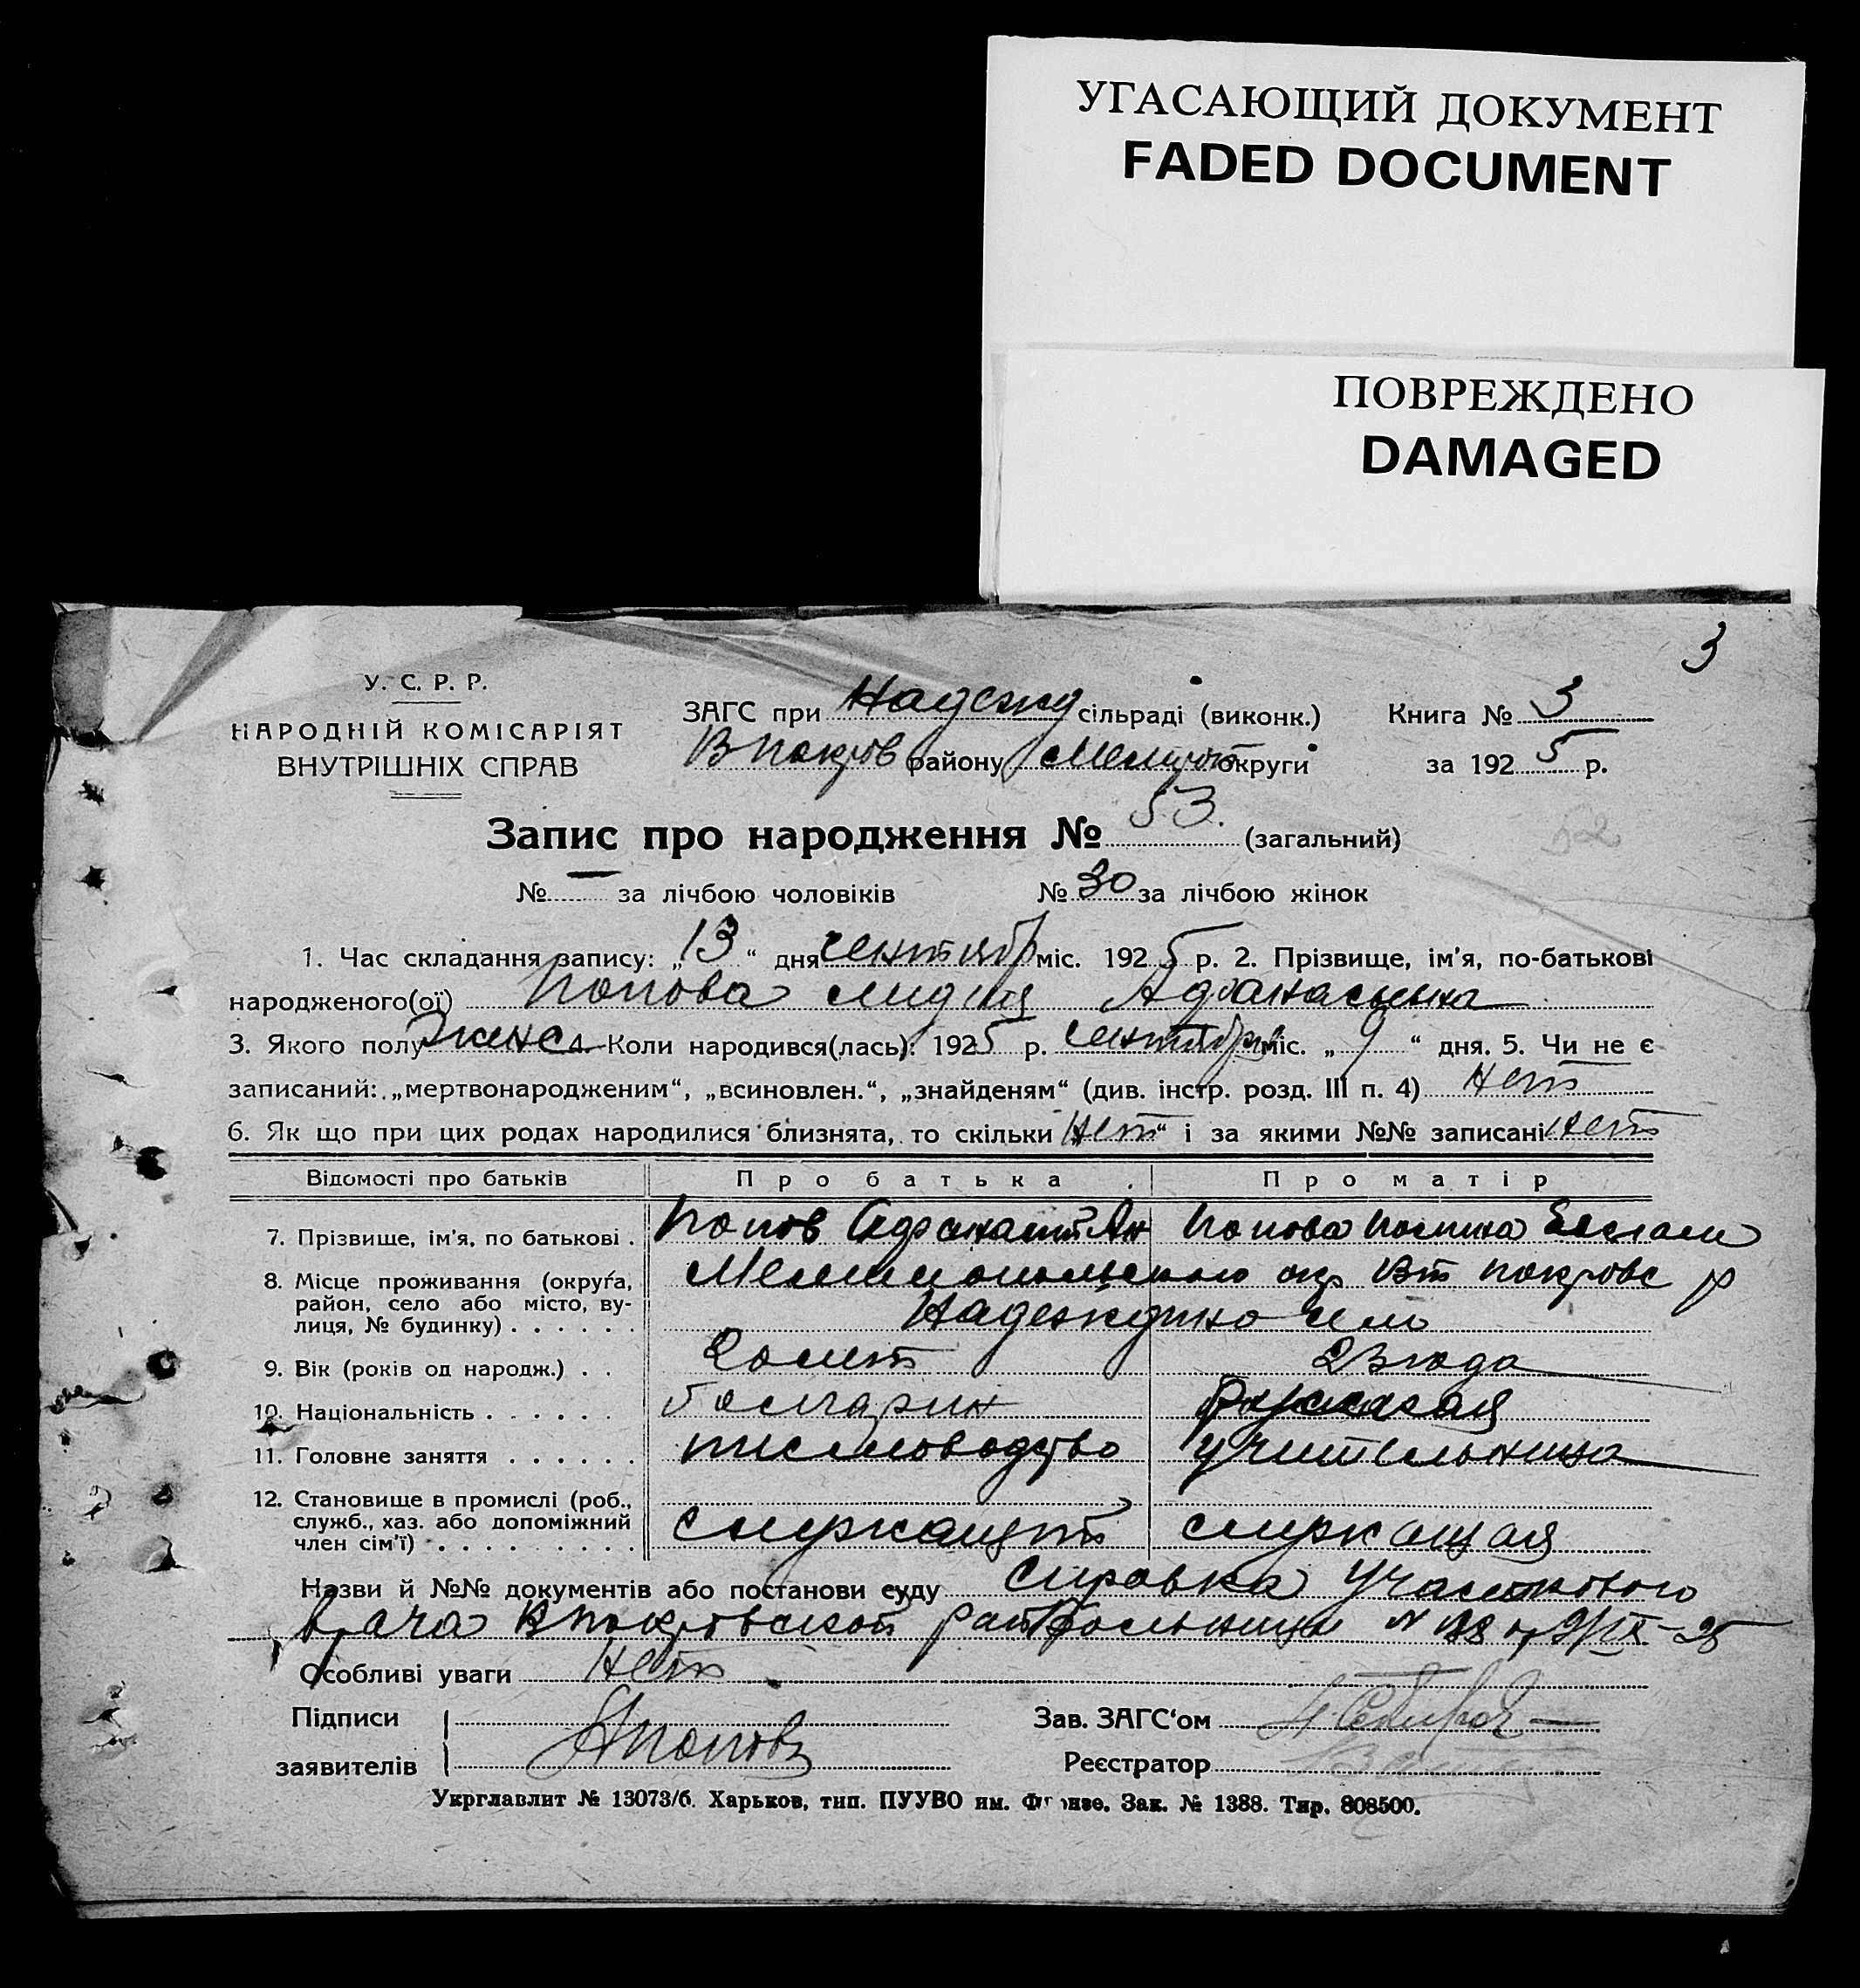 УГАСАЮЩИЙ ДОКУМЕНТ
FADED DOCUMENT
ПОВРЕЖДЕНО
DAMAGED
3
У. С. Р. Р.
НАРОДНІЙ КОМІСАРІЯТ
ВНУТРІШНІХ СПРАВ
ЗАГС при Надежд сільраді (виконк.) Книга № 3
В Покров району Мелит округи за 1925 р.
Запис про народження № 53. (загальний)
52
№ — за лічбою чоловіків № 30 за лічбою жінок
1. Час складання запису: „13“ дня сентябр міс. 1925 р. 2. Прізвище, ім'я, по-батькові
народженого(ої) Попова Лидия Афанасьевна
3. Якого полу женс 4. Коли народився(лась): 1925 р. сентября міс. „9“ дня. 5. Чи не є
записаний: „мертвонародженим“, „всиновлен.“, „знайденям“ (див. інстр. розд. III п. 4) нет
6. Як що при цих родах народилися близнята, то скільки „нет“ і за якими №№ записані нет
Відомості про батьків Про батька Про матір
7. Прізвище, ім'я, по батькові . Попов Афанасий Ан Попова
8. Місце проживання (округа, район, село або місто, вулиця, № будинку) . . . . . . Мелитопольского окр Вт Покровс р
Надеждино село
9. Вік (років од народж.) . . 20 лет 23 года
10. Національність . . . . . . болгарин русская
11. Головне заняття . . . . . . письмоводство учительница
12. Становище в промислі (роб., служб., хаз. або допоміжний член сім'ї) . . . . . . . . . служащий служащая
Назви й №№ документів або постанови суду Справка Участкового
врача В Покровской райбольницы № от 9/IX-25
Особливі уваги нет
Підписи Зав. ЗАГС'ом
заявителів АПопов Реєстратор
Укрглавлит № 13073/б. Харьков, тип. ПУУВО им. Фрунзе. Зак. № 1388. Тир. 808500.